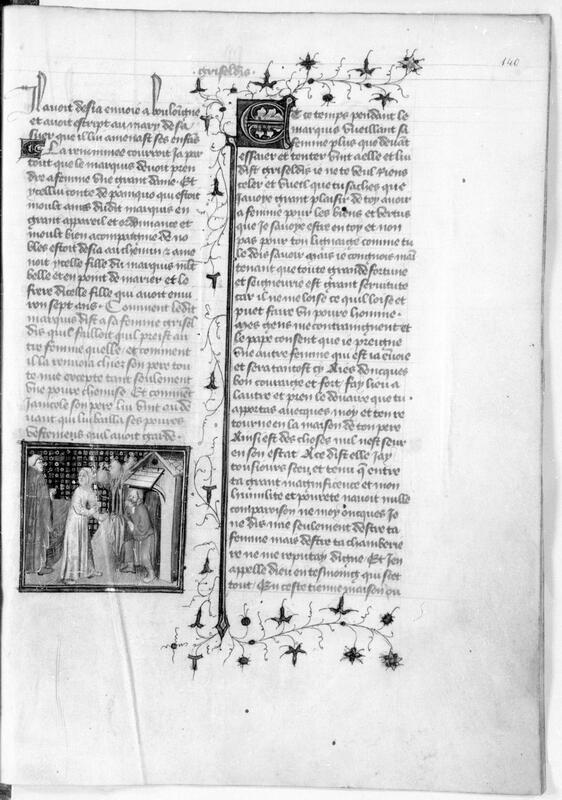 140
griseldis.
Il avoit desia envoie a boulongne
et avoit escript au mary de sa
suer que il lui amenast ses enfans
La renommee couroit ia par
tout que le marquis devoit pren
dre a femme une grant dame. Et
ycellui conte de panquo qui estoit
moult amis dudit marquis en
grant appareil et ordonnance et
moult bien acompaigne de no
bles estoit desia au chemin et ame
noit ycelle fille du marquis mlt
belle et en point de marier et le
frere dicelle fille qui avoit envi
ron sept ans. Comment ledit
marquis dist a sa femme grisel
dis quil failloit quil preist au
tre femme quelle. et comment
il la renvoia chiez son pere tou
te nue excepte tant seulement
une povre chemise. Et comment
Janicole son pere lui vint au de
vant qui lui bailla ses povres
vestemens quil avoit garde.
En ce temps pendant le
marquis vueillant sa
femme plus que devant
essaier et tenter vint a elle et lui
dist Griseldis ie ne te veul riens
celer et vueil que tu saches que
iavoye grant plaisir de toy avoir
a femme pour les biens et vertus
que ie savoye estre en toy et non
pas pour ton lignaige comme tu
le dois savoir mais ie congnois main
tenant que toute grande fortune
et seigneurie est grant servitute
car il ne me loise ce quil loise et
puet faire un povre homme.
Mes gens me contraingnent et
le pape consent que ie preigne
une autre femme qui est ia en voie
et sera tantost cy. Aies doncques
bon couraige et fort fay lieu a
lautre et pren le douaire que tu
apportas avecques moy et ten re
tourne en la maison de ton pere
Ainsi est des choses nul nest seur
en son estat. A ce dist elle Jay
tousiours sceu et tenu que entre
ta grant magnificence et mon
humilite et povrete navoit nulle
comparison ne moy oncques ie
ne dis mie seulement destre ta
femme mais destre ta chamberie
re ne me reputay digne. Et ien
appelle dieu en tesmoing qui scet
tout. En ceste tienne maison ou